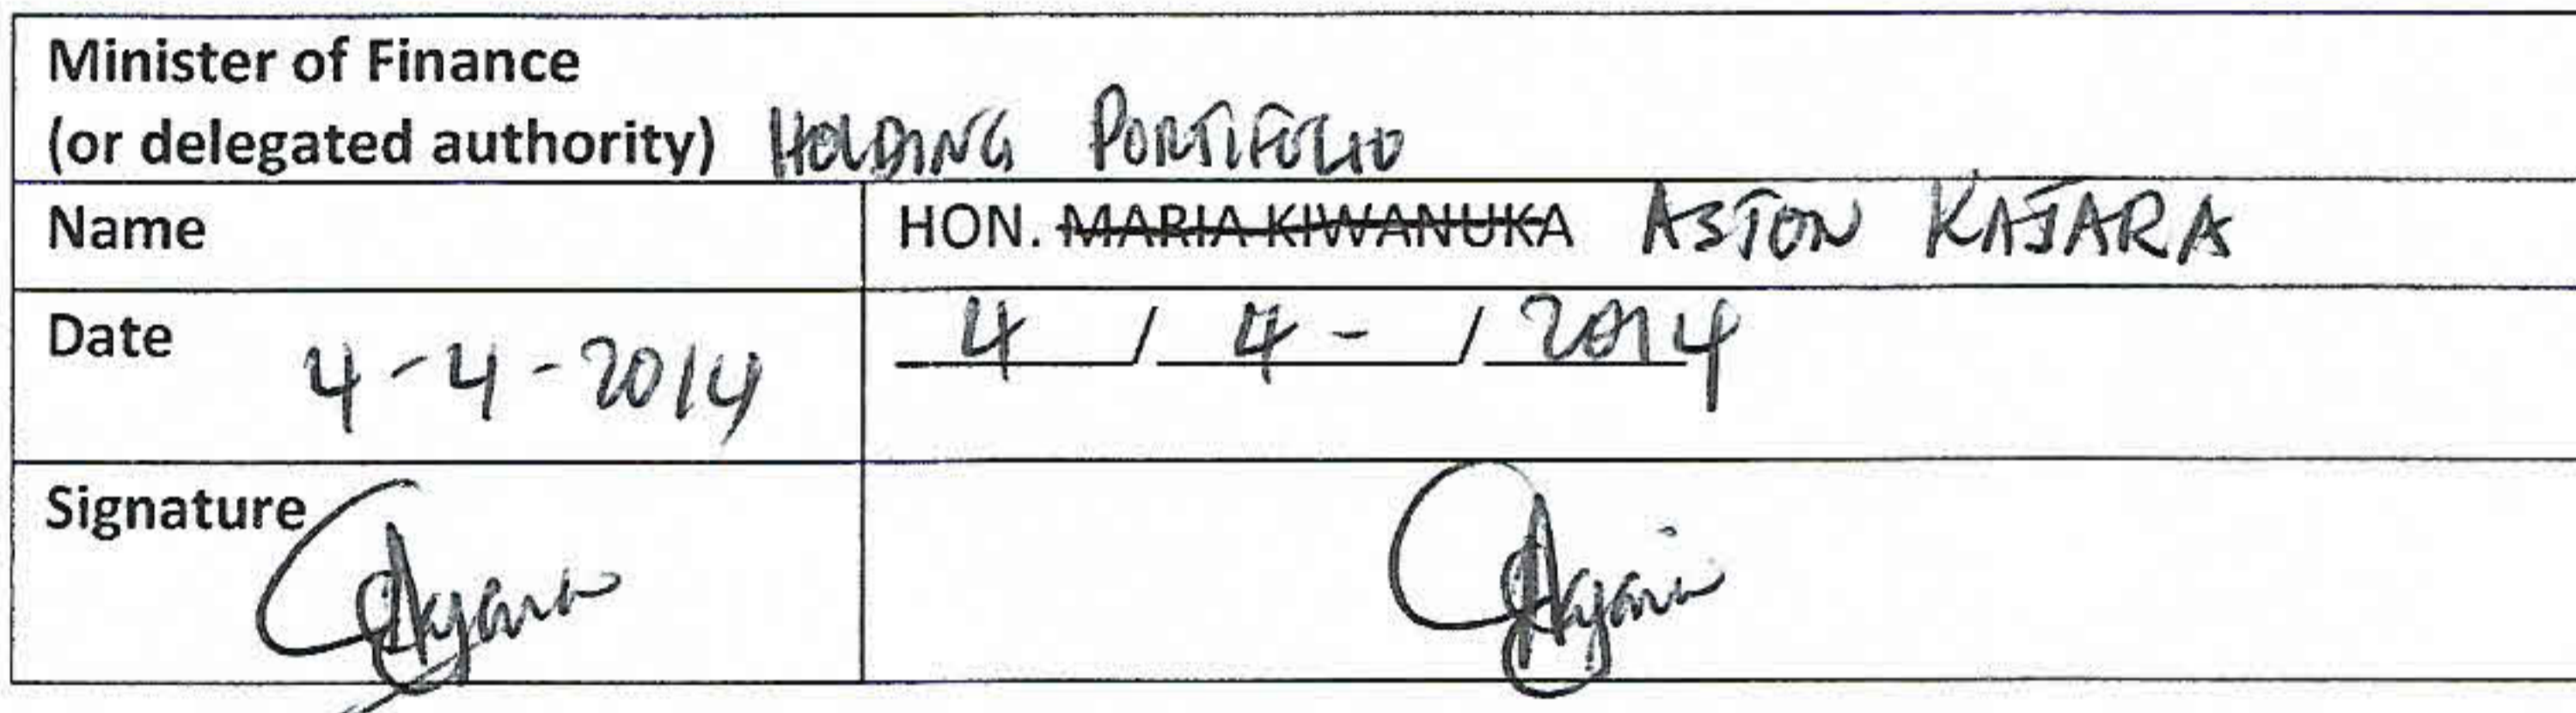 Minister of Finance
(or delegated authority) HOLDING PORTIFOLIO
Name HON. MARIA KIWANUKA ASTON KAJARA
Date 4-4-2014 4 / 4 - / 2014
Signature